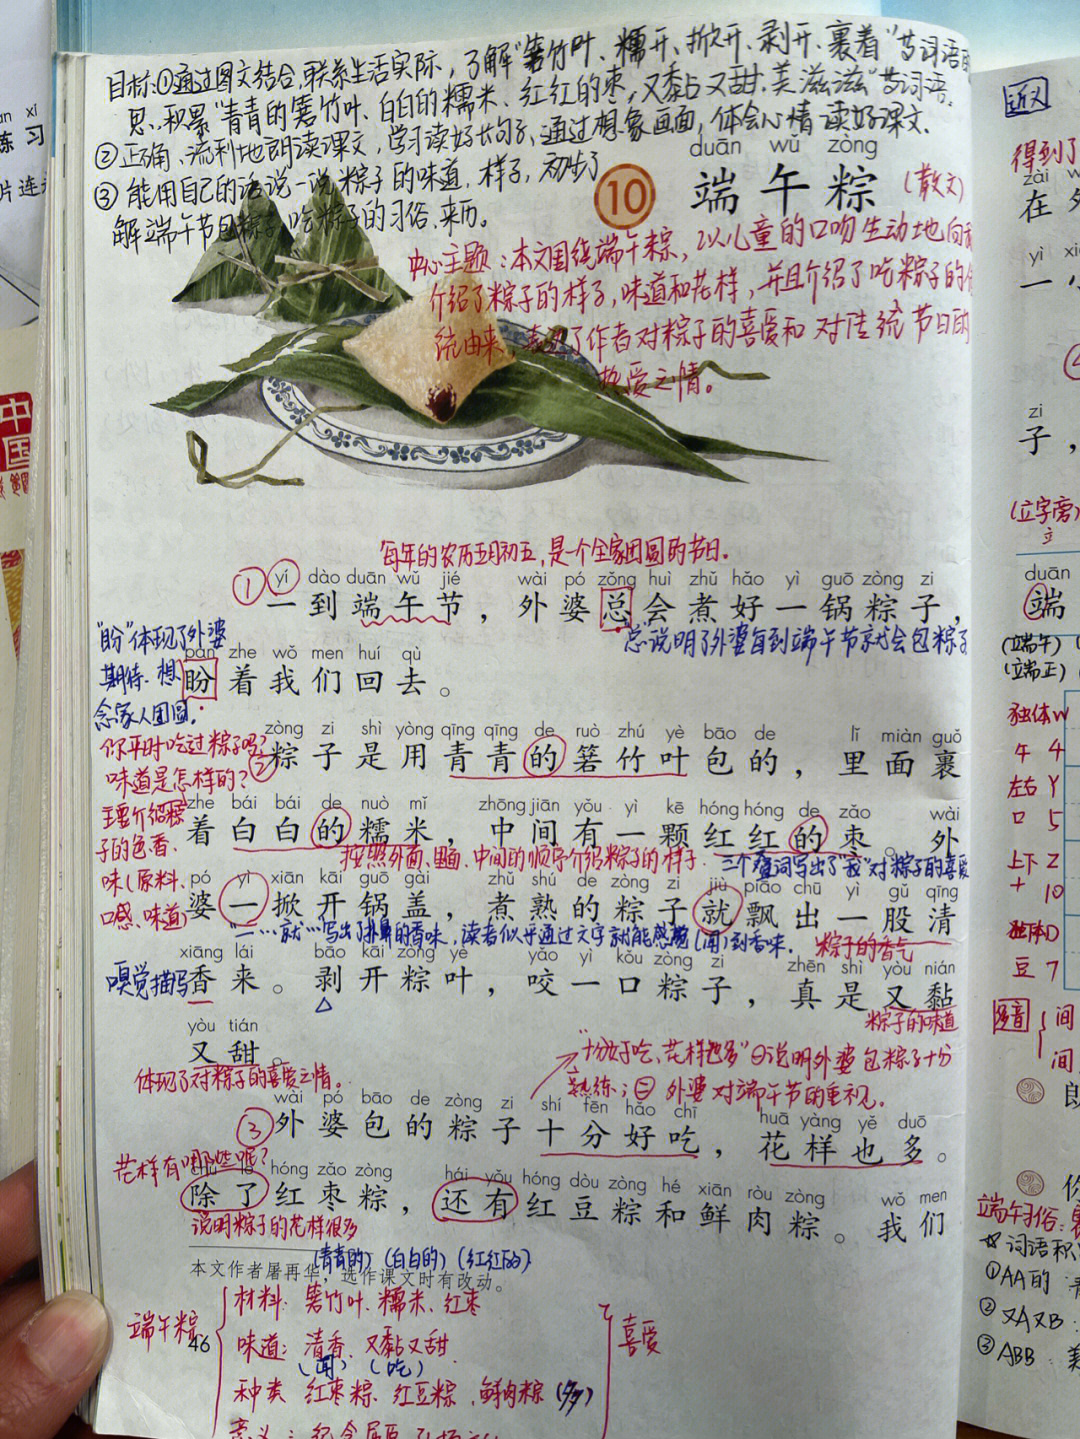 目标:①通过图文结合,联系生活实际,了解"箬竹叶、糯米、掀开、剥开、裹着"等词语的
思,积累"青青的箬竹叶、白白的糯米、红红的枣,又黏又甜.美滋滋"等词语.
②正确、流利地朗读课文,学习读好长句子,通过想象画面,体会心情读好课文.
③能用自己的话说一说粽子的味道,样子,初步了
解端午节包粽子,吃粽子的习俗、来历。
duān wǔ zòng
10 端午粽 (散文)
中心主题:本文围绕端午粽,以儿童的口吻生动地向
介绍了粽子的样子,味道和花样,并且介绍了吃粽子的
统由来,表达了作者对粽子的喜爱和对传统节日的
热爱之情。
每年的农历五月初五,是一个全家团圆的节日。
① yí dào duān wǔ jié wài pó zǒng huì zhǔ hǎo yì guō zòng zi
一到端午节,外婆总会煮好一锅粽子,
总说明了外婆每到端午节就会包粽子
"盼"体现了外婆
期待.想
念家人团圆.
pàn zhe wǒ men huí qù
盼着我们回去。
你平时吃过粽子吗?
味道是怎样的?
② zòng zi shì yòng qīng qīng de ruò zhú yè bāo de lǐ miàn guǒ
粽子是用青青的箬竹叶包的,里面裹
主要介绍粽
子的色香、
味(原料、
口感、味道)
zhe bái bái de nuò mǐ zhōng jiān yǒu yì kē hóng hóng de zǎo wài
着白白的糯米,中间有一颗红红的枣。外
按照外面、里面、中间的顺序介绍粽子的样子.
三个叠词写出了"我"对粽子的喜爱
pó yì xiān kāi guō gài zhǔ shú de zòng zi jiù piāo chū yì gǔ qīng
婆一掀开锅盖,煮熟的粽子就飘出一股清
"一……就……"写出了扑鼻的香味,读者似乎通过文字就能感觉(闻)到香味.
粽子的香气
嗅觉描写
xiāng lái bāo kāi zòng yè yǎo yì kǒu zòng zi zhēn shì yòu nián
香来。剥开粽叶,咬一口粽子,真是又黏
粽子的味道
yòu tián
又甜。
体现了对粽子的喜爱之情。
"十分好吃、花样也多"㊀说明外婆包粽子十分
熟练;㊁外婆对端午节的重视。
③ wài pó bāo de zòng zi shí fēn hǎo chī huā yàng yě duō
外婆包的粽子十分好吃,花样也多。
花样有哪些呢?
chú le hóng zǎo zòng hái yǒu hóng dòu zòng hé xiān ròu zòng wǒ men
除了红枣粽,还有红豆粽和鲜肉粽。我们
说明粽子的花样很多
(青青的)(白白的)(红红的)
本文作者屠再华,选作课文时有改动。
端午粽
材料:箬竹叶、糯米、红枣
味道:清香、又黏又甜
(闻) (吃)
种类 红枣粽、红豆粽、鲜肉粽(多)
意义:纪念屈原
喜爱
46
xí
练习
片连
中国
近义
得到了
zài
在外
yì
一
zi
子,
(立字旁)
立
duān
端
(端午)
(端正)
独体
午 4
左右 丫
口 5
上下 Z
十 10
独体
豆 7
多音
间
间
端午习俗:
☆词语积
①AA的
②又A又B:
③ABB:美